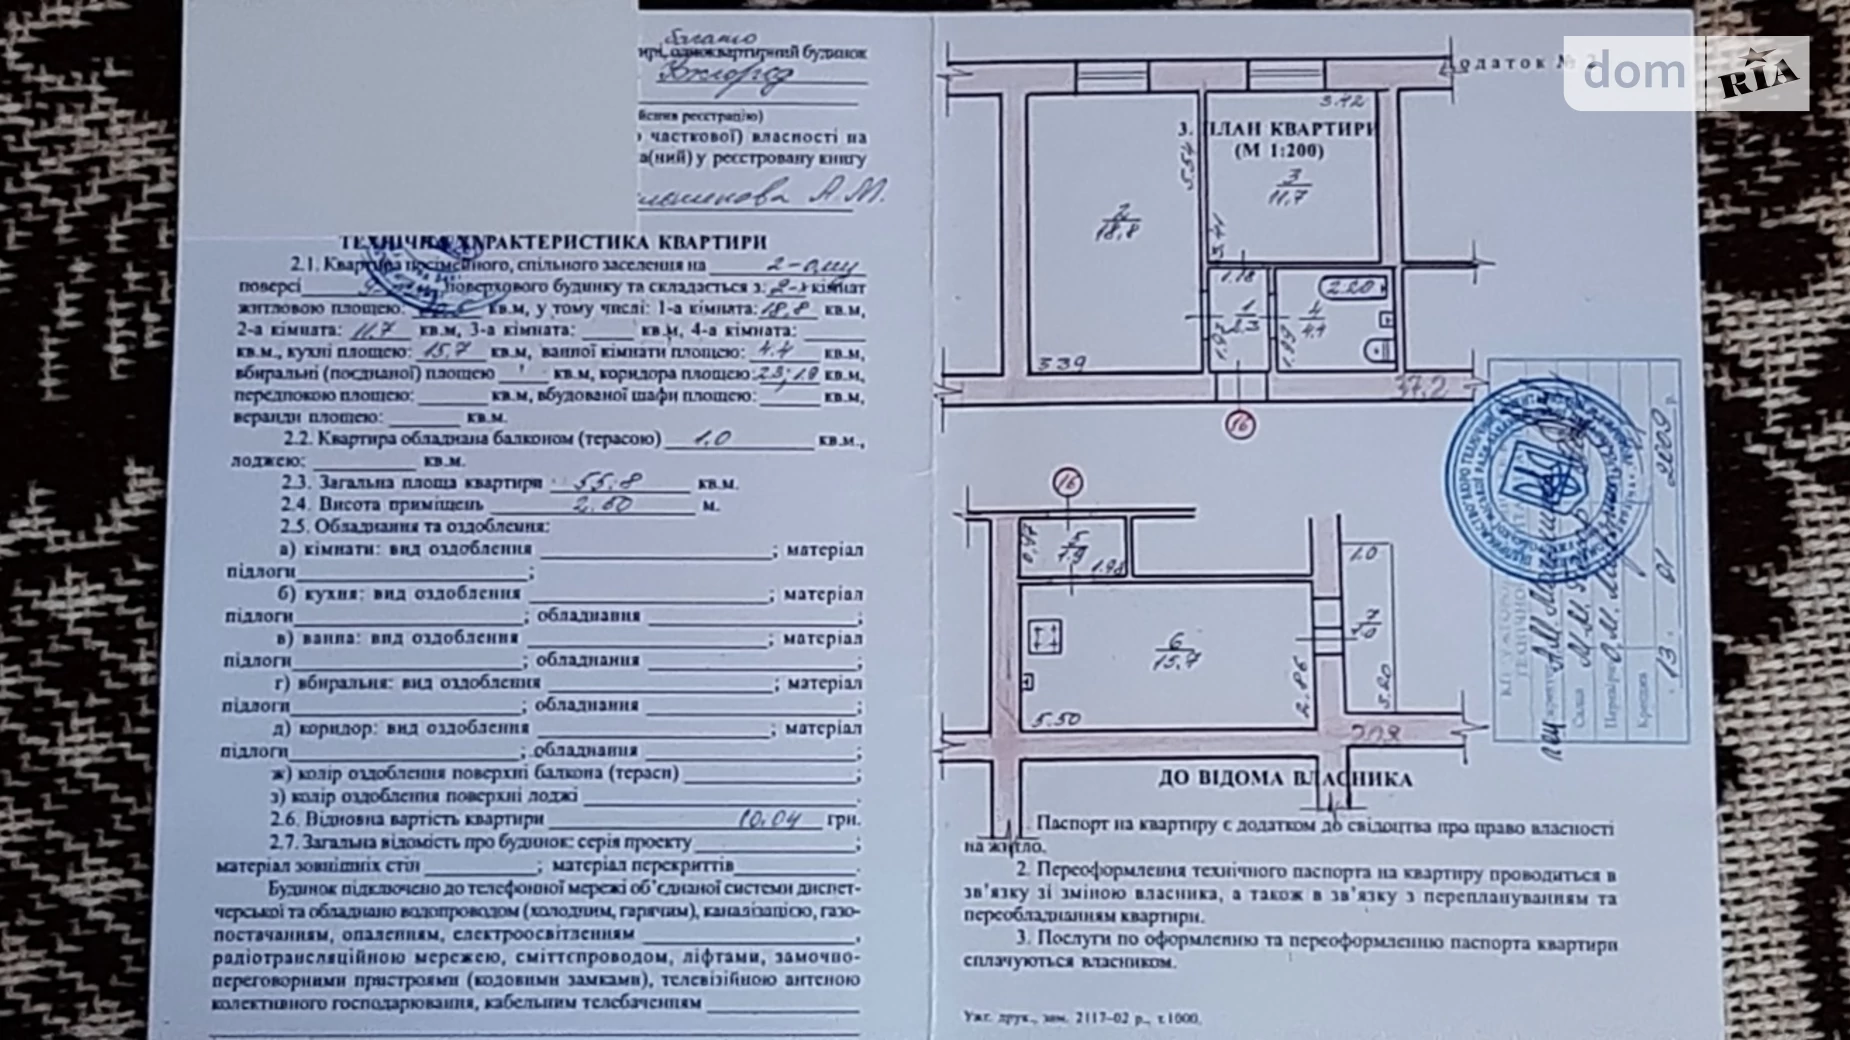 багато
ирі, одноквартирний будинок
Ужгород
йснив реєстрацію)
часткової) власності на
а(ний) у реєстровану книгу
А.М.
ТЕХНІЧНА ХАРАКТЕРИСТИКА КВАРТИРИ
2.1. Квартира посімейного, спільного заселення на 2-ому
поверсі поверхового будинку та складається з: 2-х кімнат
житловою площею: кв.м, у тому числі: 1-а кімната: 18,8 кв.м,
2-а кімната: 11,7 кв.м, 3-а кімната: кв.м, 4-а кімната:
кв.м., кухні площею: 15,7 кв.м, ванної кімнати площею: 4.4 кв.м,
вбиральні (поєднаної) площею кв.м, коридора площею: 2.3; 1.9 кв.м,
передпокою площею: кв.м, вбудованої шафи площею: кв.м,
веранди площею: кв.м.
2.2. Квартира обладнана балконом (терасою) 1.0 кв.м.,
лоджею: кв.м.
2.3. Загальна площа квартири 55,8 кв.м.
2.4. Висота приміщень 2.50 м.
2.5. Обладнання та оздоблення:
а) кімнати: вид оздоблення ; матеріал
підлоги ;
б) кухня: вид оздоблення ; матеріал
підлоги ; обладнання ;
в) ванна: вид оздоблення ; матеріал
підлоги ; обладнання ;
г) вбиральня: вид оздоблення ; матеріал
підлоги ; обладнання ;
д) коридор: вид оздоблення ; матеріал
підлоги ; обладнання ;
ж) колір оздоблення поверхні балкона (тераси) ;
з) колір оздоблення поверхні лоджі .
2.6. Відновна вартість квартири 10,04 грн.
2.7. Загальна відомість про будинок: серія проекту ;
матеріал зовнішніх стін ; матеріал перекриттів .
Будинок підключено до телефонної мережі об'єднаної системи диспет-
черської та обладнано водопроводом (холодним, гарячим), каналізацією, газо-
постачанням, опаленням, електроосвітленням ,
радіотрансляційною мережею, сміттєпроводом, ліфтами, замочно-
переговорними пристроями (кодовими замками), телевізійною антеною
колективного господарювання, кабельним телебаченням
одаток №
dom RIA
3. ПЛАН КВАРТИРИ
(М 1:200)
3.42
5.54
2
18,8
3
11.7
3.41
1.18
1
2.3
1.97
4
4.4
2.20
1.99
3.39
37,2
16
16
5
1.9
1.98
1.0
7
1.0
6
15.7
2.86
5.20
5.50
13 01 2009 р.
ДО ВІДОМА ВЛАСНИКА
Паспорт на квартиру є додатком до свідоцтва про право власності
на житло.
2. Переоформлення технічного паспорта на квартиру проводиться в
зв'язку зі зміною власника, а також в зв'язку з переплануванням та
переобладнанням квартири.
3. Послуги по оформленню та переоформленню паспорта квартири
сплачуються власником.
Ужг. друк., зам. 2117-02 р., т.1000.